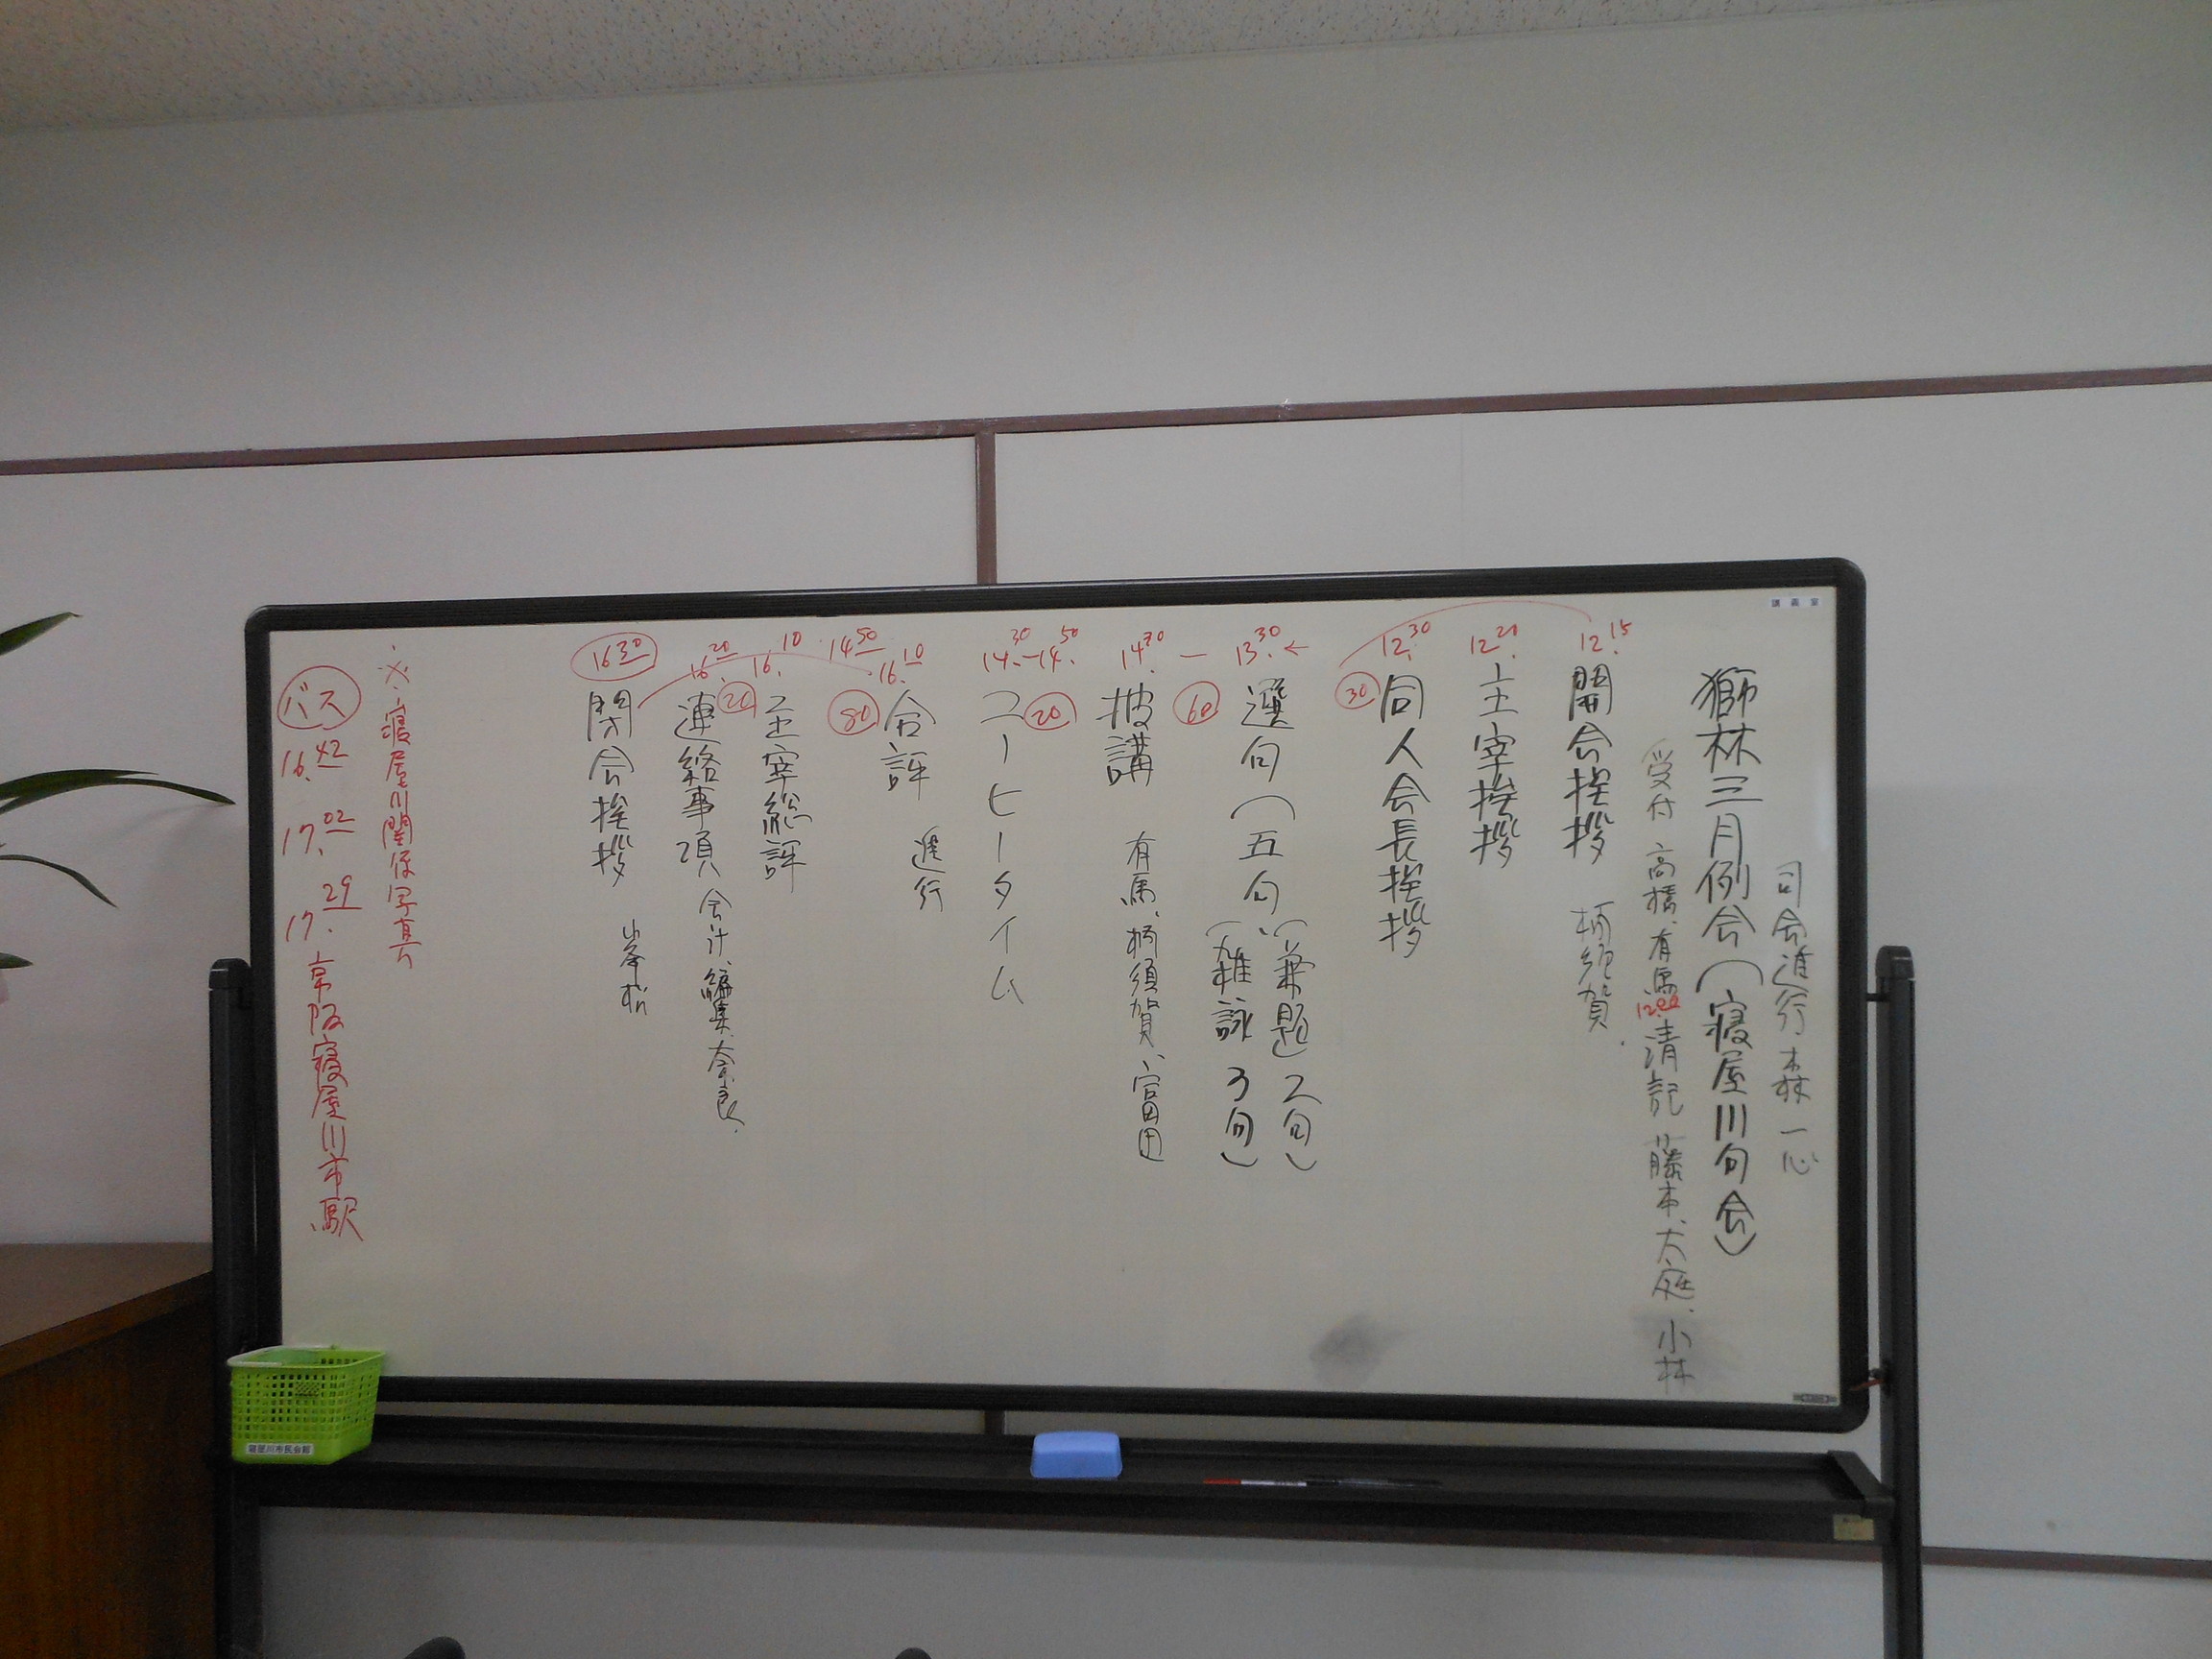 講義室
司会進行 森一心
獅林三月例会(寝屋川句会)
受付 高橋、有馬 12.00 清記 藤本、大庭、小林
12.15 開会挨拶 柄須賀
12.20 主宰挨拶
12.30 同人会長挨拶
30
13.30 ← 選句(五句、(兼題2句)
(雑詠3句)
60
14.30 — 披講 有馬、柄須賀、富田
20
14.30-14.50 コーヒータイム
14.50
16.10 合評 進行
80
16.10 主宰総評
20
16.20 連絡事項 会計、編集、奈良
16.30 閉会挨拶 峯松
※寝屋川関係写真
バス 16.42 17.02 17.29 京阪寝屋川市駅
寝屋川市民会館